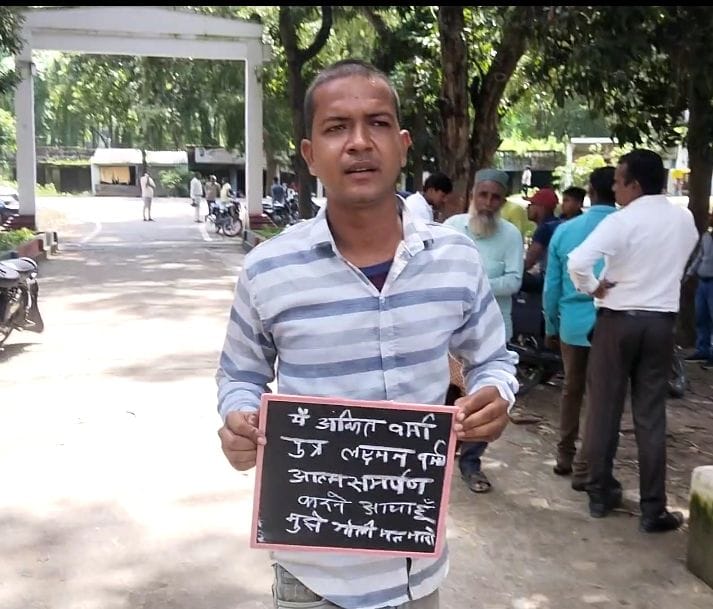 मैं अंकित वर्मा
पुत्र लक्ष्मन वर्मा
आत्मसमर्पण
करने आया हूँ
मुझे गोली मत मारो